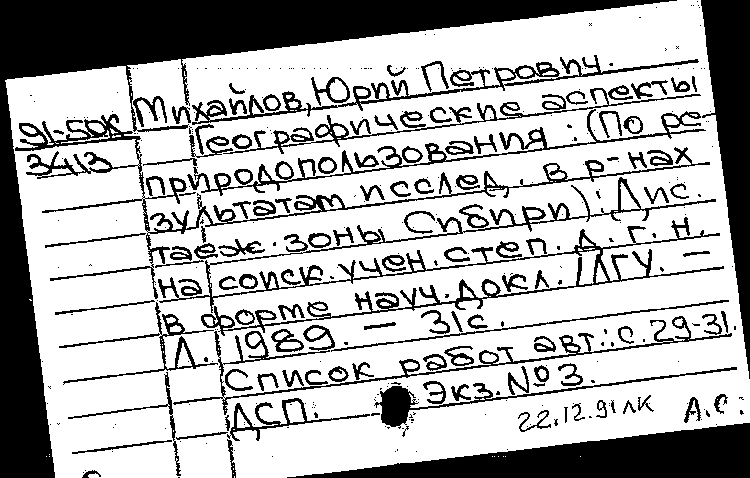 Михайлов, Юрий Петрович.
91-50к Географические аспекты
3413 природопользования : (По ре-
зультатам исслед. в р-нах
таеж. зоны Сибири) : Дис.
на соиск. учен. степ. д. г. н.
в форме науч. докл. / ЛГУ. —
Л. 1989. — 31с.
Список работ авт.: с. 29-31.
ДСП. Экз. №3.
22.12.91 лк А.С.